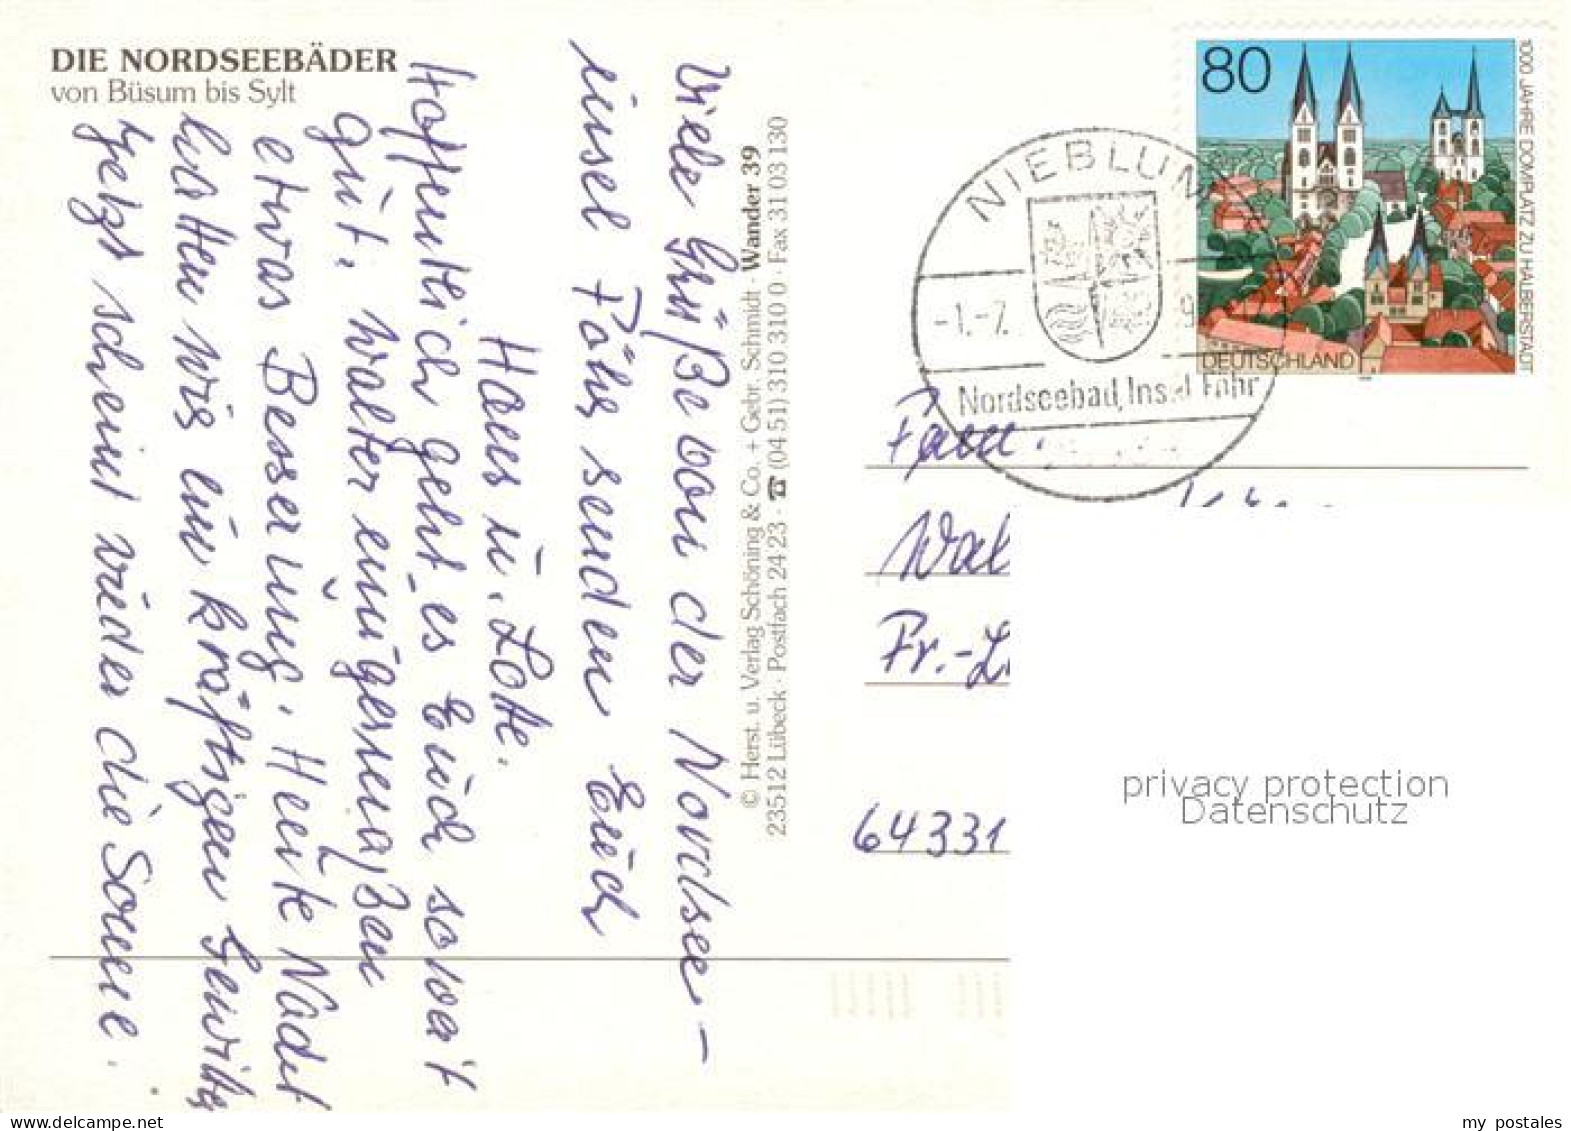 DIE NORDSEEBÄDER
von Büsum bis Sylt
Viele Grüße von der Nordsee-
insel Föhr senden Euch
Hans u. Lotte.
Hoffentlich geht es Euch soweit
gut. Walter einigermaßen
etwas Besserung. Heute Nacht
hatten wir ein kräftigen Gewitter
jetzt scheint wieder die Sonne.
© Herst. u. Verlag Schöning & Co. + Gebr. Schmidt · Wander 39
23512 Lübeck · Postfach 24 23 · ☎ (04 51) 310 310 0 · Fax 31 03 130
80
1000 JAHRE DOMPLATZ ZU HALBERSTADT
DEUTSCHLAND
NIEBLUM
-1.-7.
9
Nordseebad, Insel Föhr
Fam.
Fr.-
64331
privacy protection
Datenschutz
my_postales